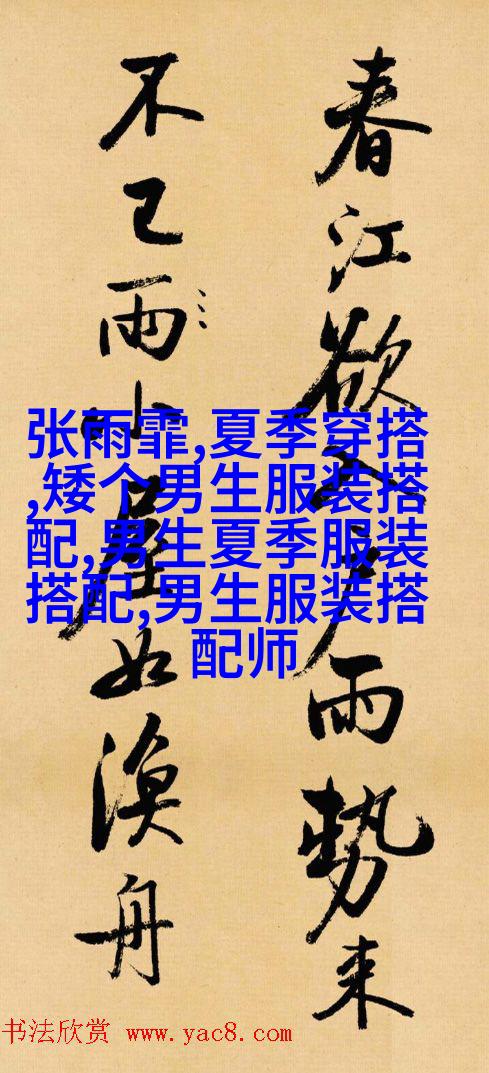 春江欲入户雨勢来
不已雨小屋如漁舟
张雨霏,夏季穿搭
,矮个男生服装搭
配,男生夏季服装
搭配,男生服装搭
配师
书法欣赏 www.yac8.com